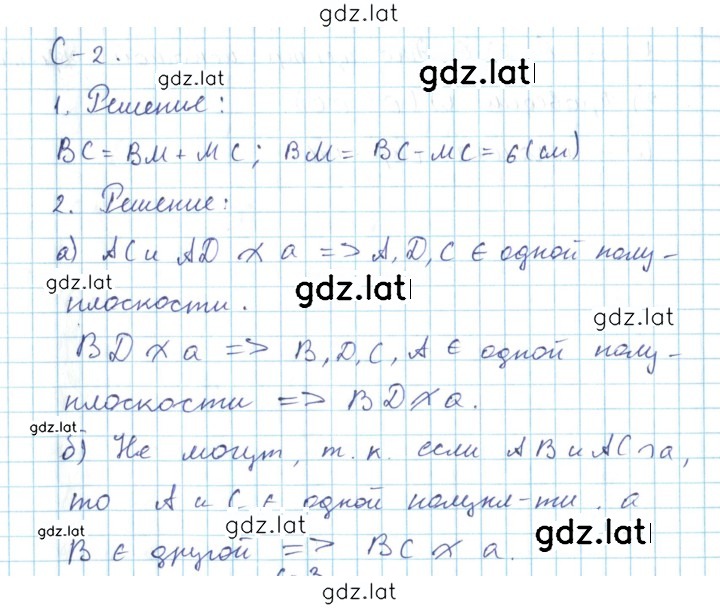 gdz.lat
С-2.
gdz.lat
gdz.lat
1. Решение:
BC = BM + MC; BM = BC - MC = 6 (см)
2. Решение:
а) AC и AD × a => A, D, C ∈ одной полу-
gdz.lat
gdz.lat
плоскости.
gdz.lat
BD × a => B, D, C, A ∈ одной полу-
плоскости => BD × a.
gdz.lat
б) Не могут, т. к. если AB и AC ∩ a,
то A и C ∈ одной полупл-ти, а
gdz.lat
gdz.lat
gdz.lat
B ∈ другой => BC × a.
gdz.lat